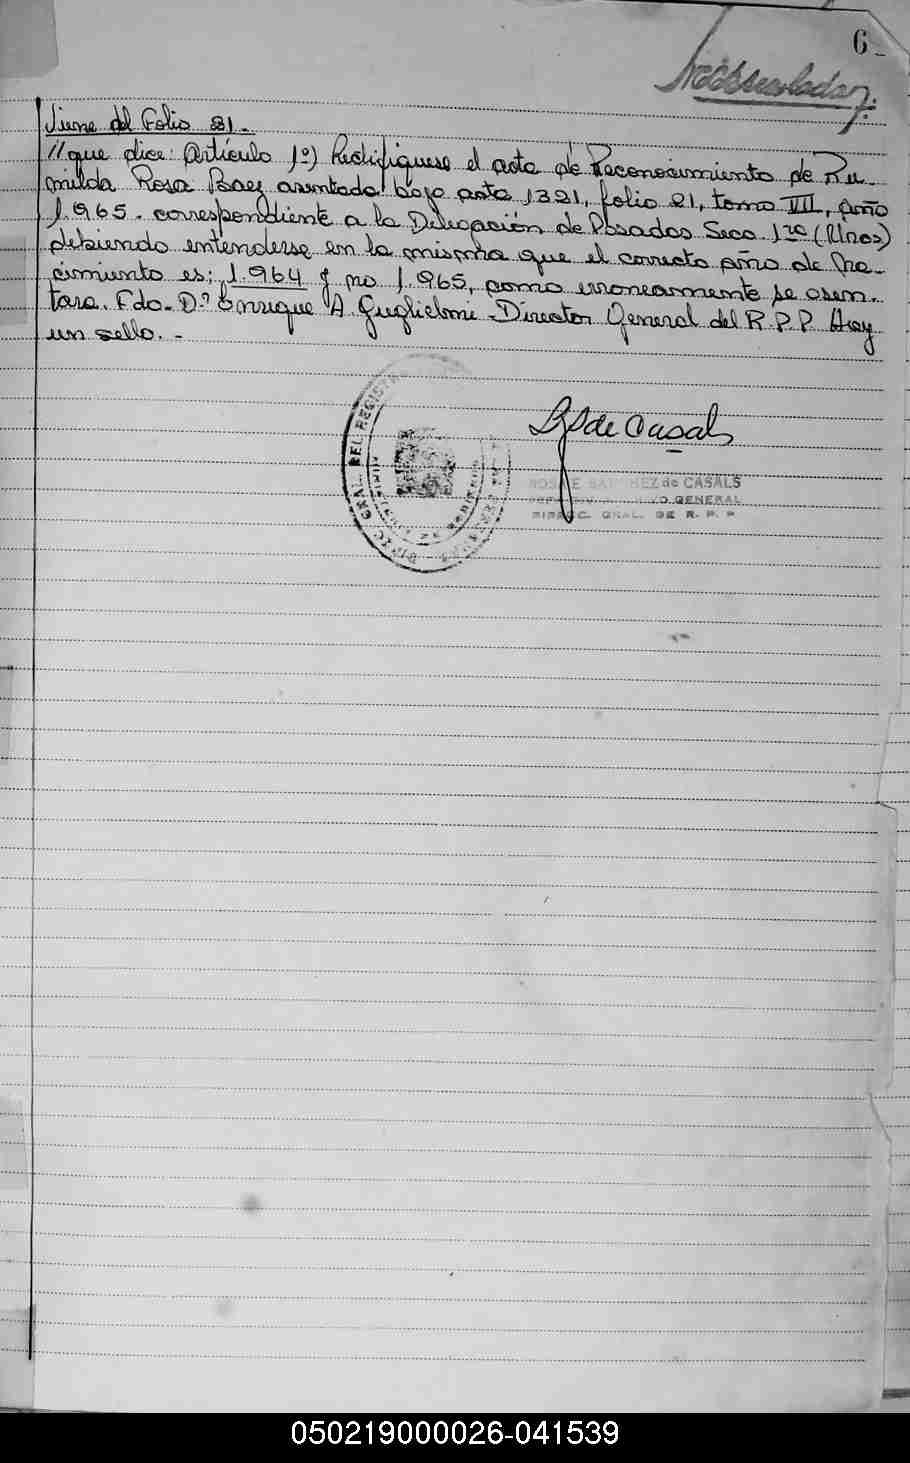 6
Viene del Folio 21.-
//que dice: Artículo 1º) Rectifíquese el acta de Reconocimiento de Ru-
milda Rosa Baez asentada bajo acta 1321, folio 21, tomo VII, año
1.965. correspondiente a la Delegación de Posadas Secc. 1ra (Unos)
debiendo entenderse en la misma que el correcto año de Na-
cimiento es; 1.964 y no 1.965, como erroneamente se asen-
tara. Fdo. D.º Enrique A Guglielmi - Director General del R.P.P. Hay
un sello. -
DIREC. GRAL. DEL REGISTR
MISIONES
ROSA E SANCHEZ de CASALS
GENERAL
DIREC. GRAL. DE R. P. P
050219000026-041539